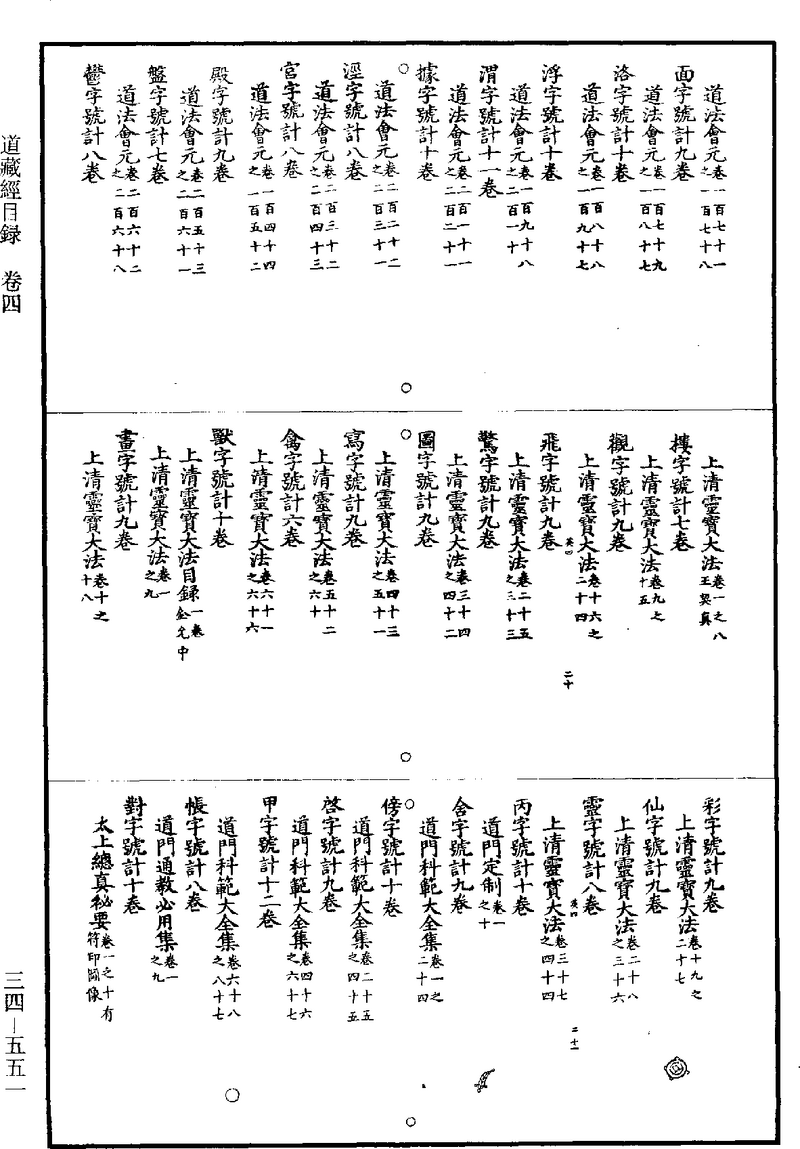 道法會元卷一百七十一之一百七十八
面字號計九卷
道法會元卷一百七十九之一百八十七
洛字號計十卷
道法會元卷一百八十八之一百九十七
浮字號計十卷
道法會元卷一百九十八之二百一十
渭字號計十一卷
道法會元卷二百一十一之二百二十一
據字號計十卷
道法會元卷二百二十二之二百三十一
涇字號計八卷
道法會元卷二百三十二之二百四十三
宮字號計八卷
道法會元卷二百四十四之二百五十二
殿字號計九卷
道法會元卷二百五十三之二百六十一
盤字號計七卷
道法會元卷二百六十二之二百六十八
鬱字號計八卷
上清靈寶大法卷一之八王契真
樓字號計七卷
上清靈寶大法卷九之十五
觀字號計九卷
上清靈寶大法卷十六之二十四
飛字號計九卷
英四
二十
上清靈寶大法卷二十五之三十三
驚字號計九卷
上清靈寶大法卷三十四之四十二
圖字號計九卷
上清靈寶大法卷四十三之五十一
寫字號計九卷
上清靈寶大法卷五十二之六十
禽字號計六卷
上清靈寶大法卷六十一之六十六
獸字號計十卷
上清靈寶大法目錄一卷金允中
上清靈寶大法卷一之九
畫字號計九卷
上清靈寶大法卷十之十八
彩字號計九卷
上清靈寶大法卷十九之二十七
仙字號計九卷
上清靈寶大法卷二十八之三十六
靈字號計八卷
英四
二十一
上清靈寶大法卷三十七之四十四
丙字號計十卷
道門定制卷一之十
舍字號計九卷
道門科範大全集卷一之二十四
傍字號計十卷
道門科範大全集卷二十五之四十五
啓字號計九卷
道門科範大全集卷四十六之六十七
甲字號計十二卷
道門科範大全集卷六十八之八十七
帳字號計八卷
道門通教必用集卷一之九
對字號計十卷
太上總真秘要卷一之十有符印圖像
道藏經目録 卷四
三四—五五一